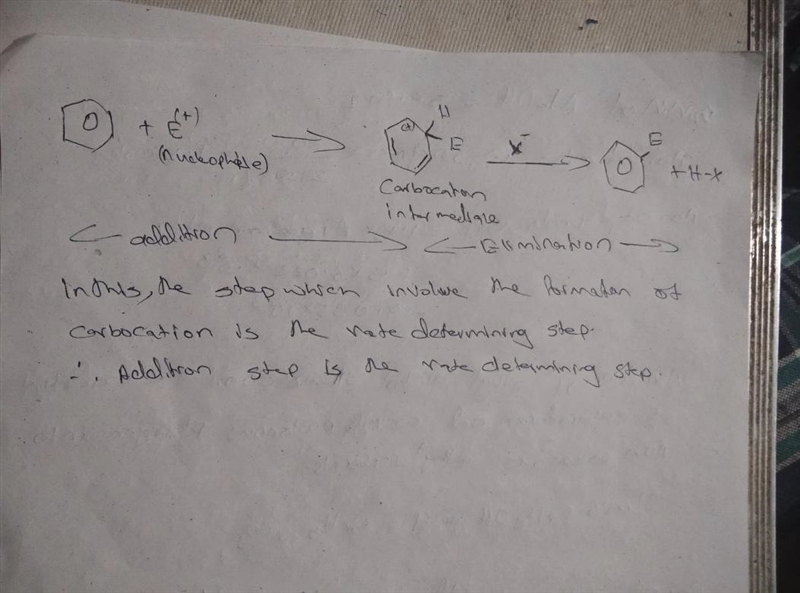 + E(+) H
(nucleophile) E X⁻ E
+ H-X
Carbocation
intermediate
addition Elimination
In this, the step which involve the formation of
carbocation is the rate determining step.
∴ Addition step is the rate determining step.